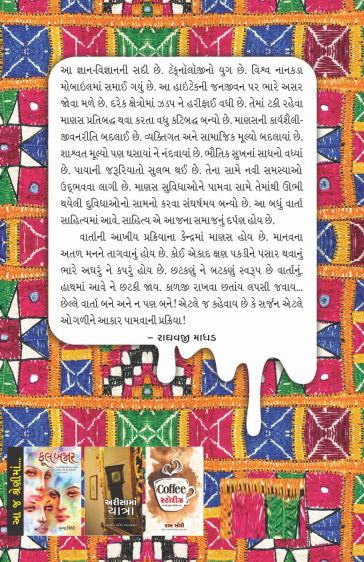 આ જ્ઞાન-વિજ્ઞાનની સદી છે. ટેક્નૉલૉજીનો યુગ છે. વિશ્વ નાનકડા
મોબાઇલમાં સમાઈ ગયું છે. આ હાઇટેકની જનજીવન પર ભારે અસર
જોવા મળે છે. દરેક ક્ષેત્રોમાં ઝડપ ને હરીફાઈ વધી છે. તેમાં ટકી રહેવા
માણસ પ્રતિબદ્ધ થવા કરતા વધુ કટિબદ્ધ બન્યો છે. માણસની કાર્યશૈલી-
જીવનરીતિ બદલાઈ છે. વ્યક્તિગત અને સામાજિક મૂલ્યો બદલાયાં છે.
શાશ્વત મૂલ્યો પણ ઘસાયાં ને નંદવાયાં છે. ભૌતિક સુખનાં સાધનો વધ્યાં
છે. પાયાની જરૂરિયાતો સુલભ થઈ છે. તેના સામે નવી સમસ્યાઓ
ઉદ્દભવવા લાગી છે. માણસ સુવિધાઓને પામવા સામે તેમાંથી ઊભી
થયેલી દુવિધાઓનો સામનો કરવા સંઘર્ષમય બન્યો છે. આ બધું વાર્તા
સાહિત્યમાં આવે. સાહિત્ય એ આજના સમાજનું દર્પણ હોય છે.
વાર્તાની આખીય પ્રક્રિયાના કેન્દ્રમાં માણસ હોય છે. માનવના
અતળ મનને તાગવાનું હોય છે. કોઈ એકાદ ક્ષણ પકડીને પસાર થવાનું
ભારે અઘરું ને કપરું હોય છે. છટકણું ને બટકણું સ્વરૂપ છે વાર્તાનું.
હાથમાં આવે ને છટકી જાય. કાળજી રાખવા છતાંય લપસી જવાય...
છેલ્લે વાર્તા બને અને ન પણ બને! એટલે જ કહેવાય છે કે સર્જન એટલે
ઓગળીને આકાર પામવાની પ્રક્રિયા!
– રાઘવજી માધડ
આ જ શ્રેણીમાં...
ફૂલબજાર
અરીસામાં
યાત્રા
Coffee
સ્ટોરીઝ
રામ મોરી